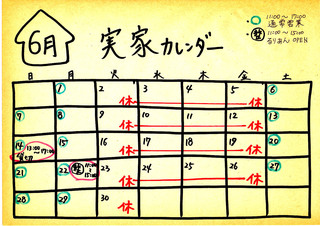 6月
実家カレンダー
11:00〜17:00
通常営業
11:00〜15:00
るりあん OPEN
日 月 火 水 木 金 土
1 2 3 4 5 6
休 休
7 8 9 10 11 12 13
休 休
14 15 16 17 18 19 20
13:00〜17:00
休 休
21 22 23 24 25 26 27
11:00〜15:00
休 休
28 29 30
休